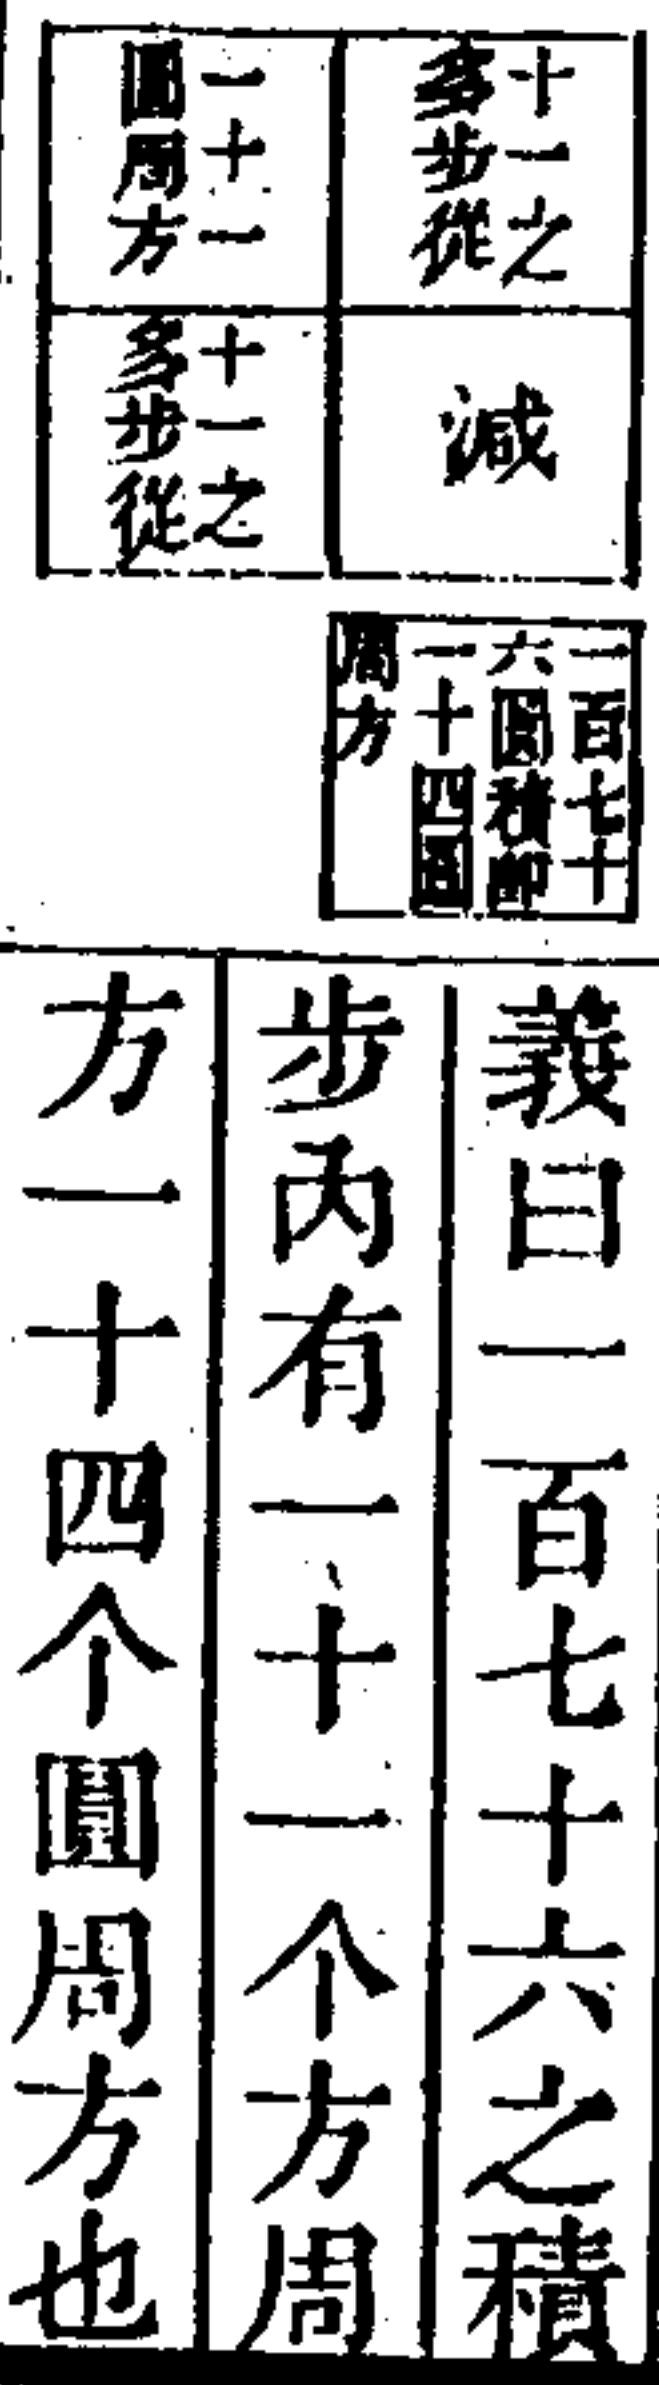 十一之
多步從
一十一
圓周方
減
十一之
多步從
一百七十
六圓積即
一十四圓
周方
義曰一百七十六之積
步內有一十一个方周
方一十四个圓周方也